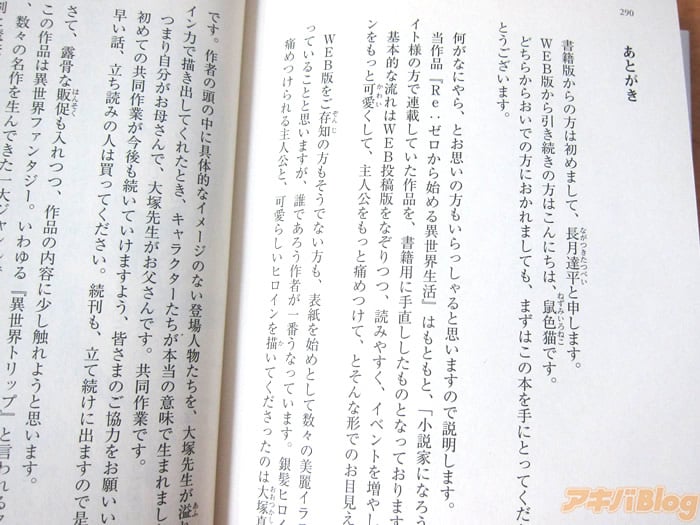 290
あとがき
書籍版からの方は初めまして、長月達平と申します。
WEB版から引き続きの方はこんにちは、鼠色猫です。
どちらからおいでの方におかれましても、まずはこの本を手にとってくだ
とうございます。
何がなにやら、とお思いの方もいらっしゃると思いますので説明します。
当作品『Re:ゼロから始める異世界生活』はもともと、「小説家になろう
イト様の方で連載していた作品を、書籍用に手直ししたものとなっております
基本的な流れはWEB投稿版をなぞりつつ、読みやすく、イベントを増やし
ンをもっと可愛くして、主人公をもっと痛めつけて、とそんな形でのお目見え
WEB版をご存知の方もそうでない方も、表紙を始めとして数々の美麗イラ
っていることと思いますが、誰であろう作者が一番うなっています。銀髪ヒロイン
痛めつけられる主人公と、可愛らしいヒロインを描いてくださったのは大塚真
です。作者の頭の中に具体的なイメージのない登場人物たちを、大塚先生が溢れ
イン力で描き出してくれたとき、キャラクターたちが本当の意味で生まれまし
つまり自分がお母さんで、大塚先生がお父さんです。共同作業です。
初めての共同作業が今後も続いていけますよう、皆さまのご協力をお願いい
早い話、立ち読みの人は買ってください。続刊も、立て続けに出ますので是
さて、露骨な販促も入れつつ、作品の内容に少し触れようと思います。
この作品は異世界ファンタジー。いわゆる『異世界トリップ』と言われる
、数々の名作を生んできた一大ジャンル
アキバBlog